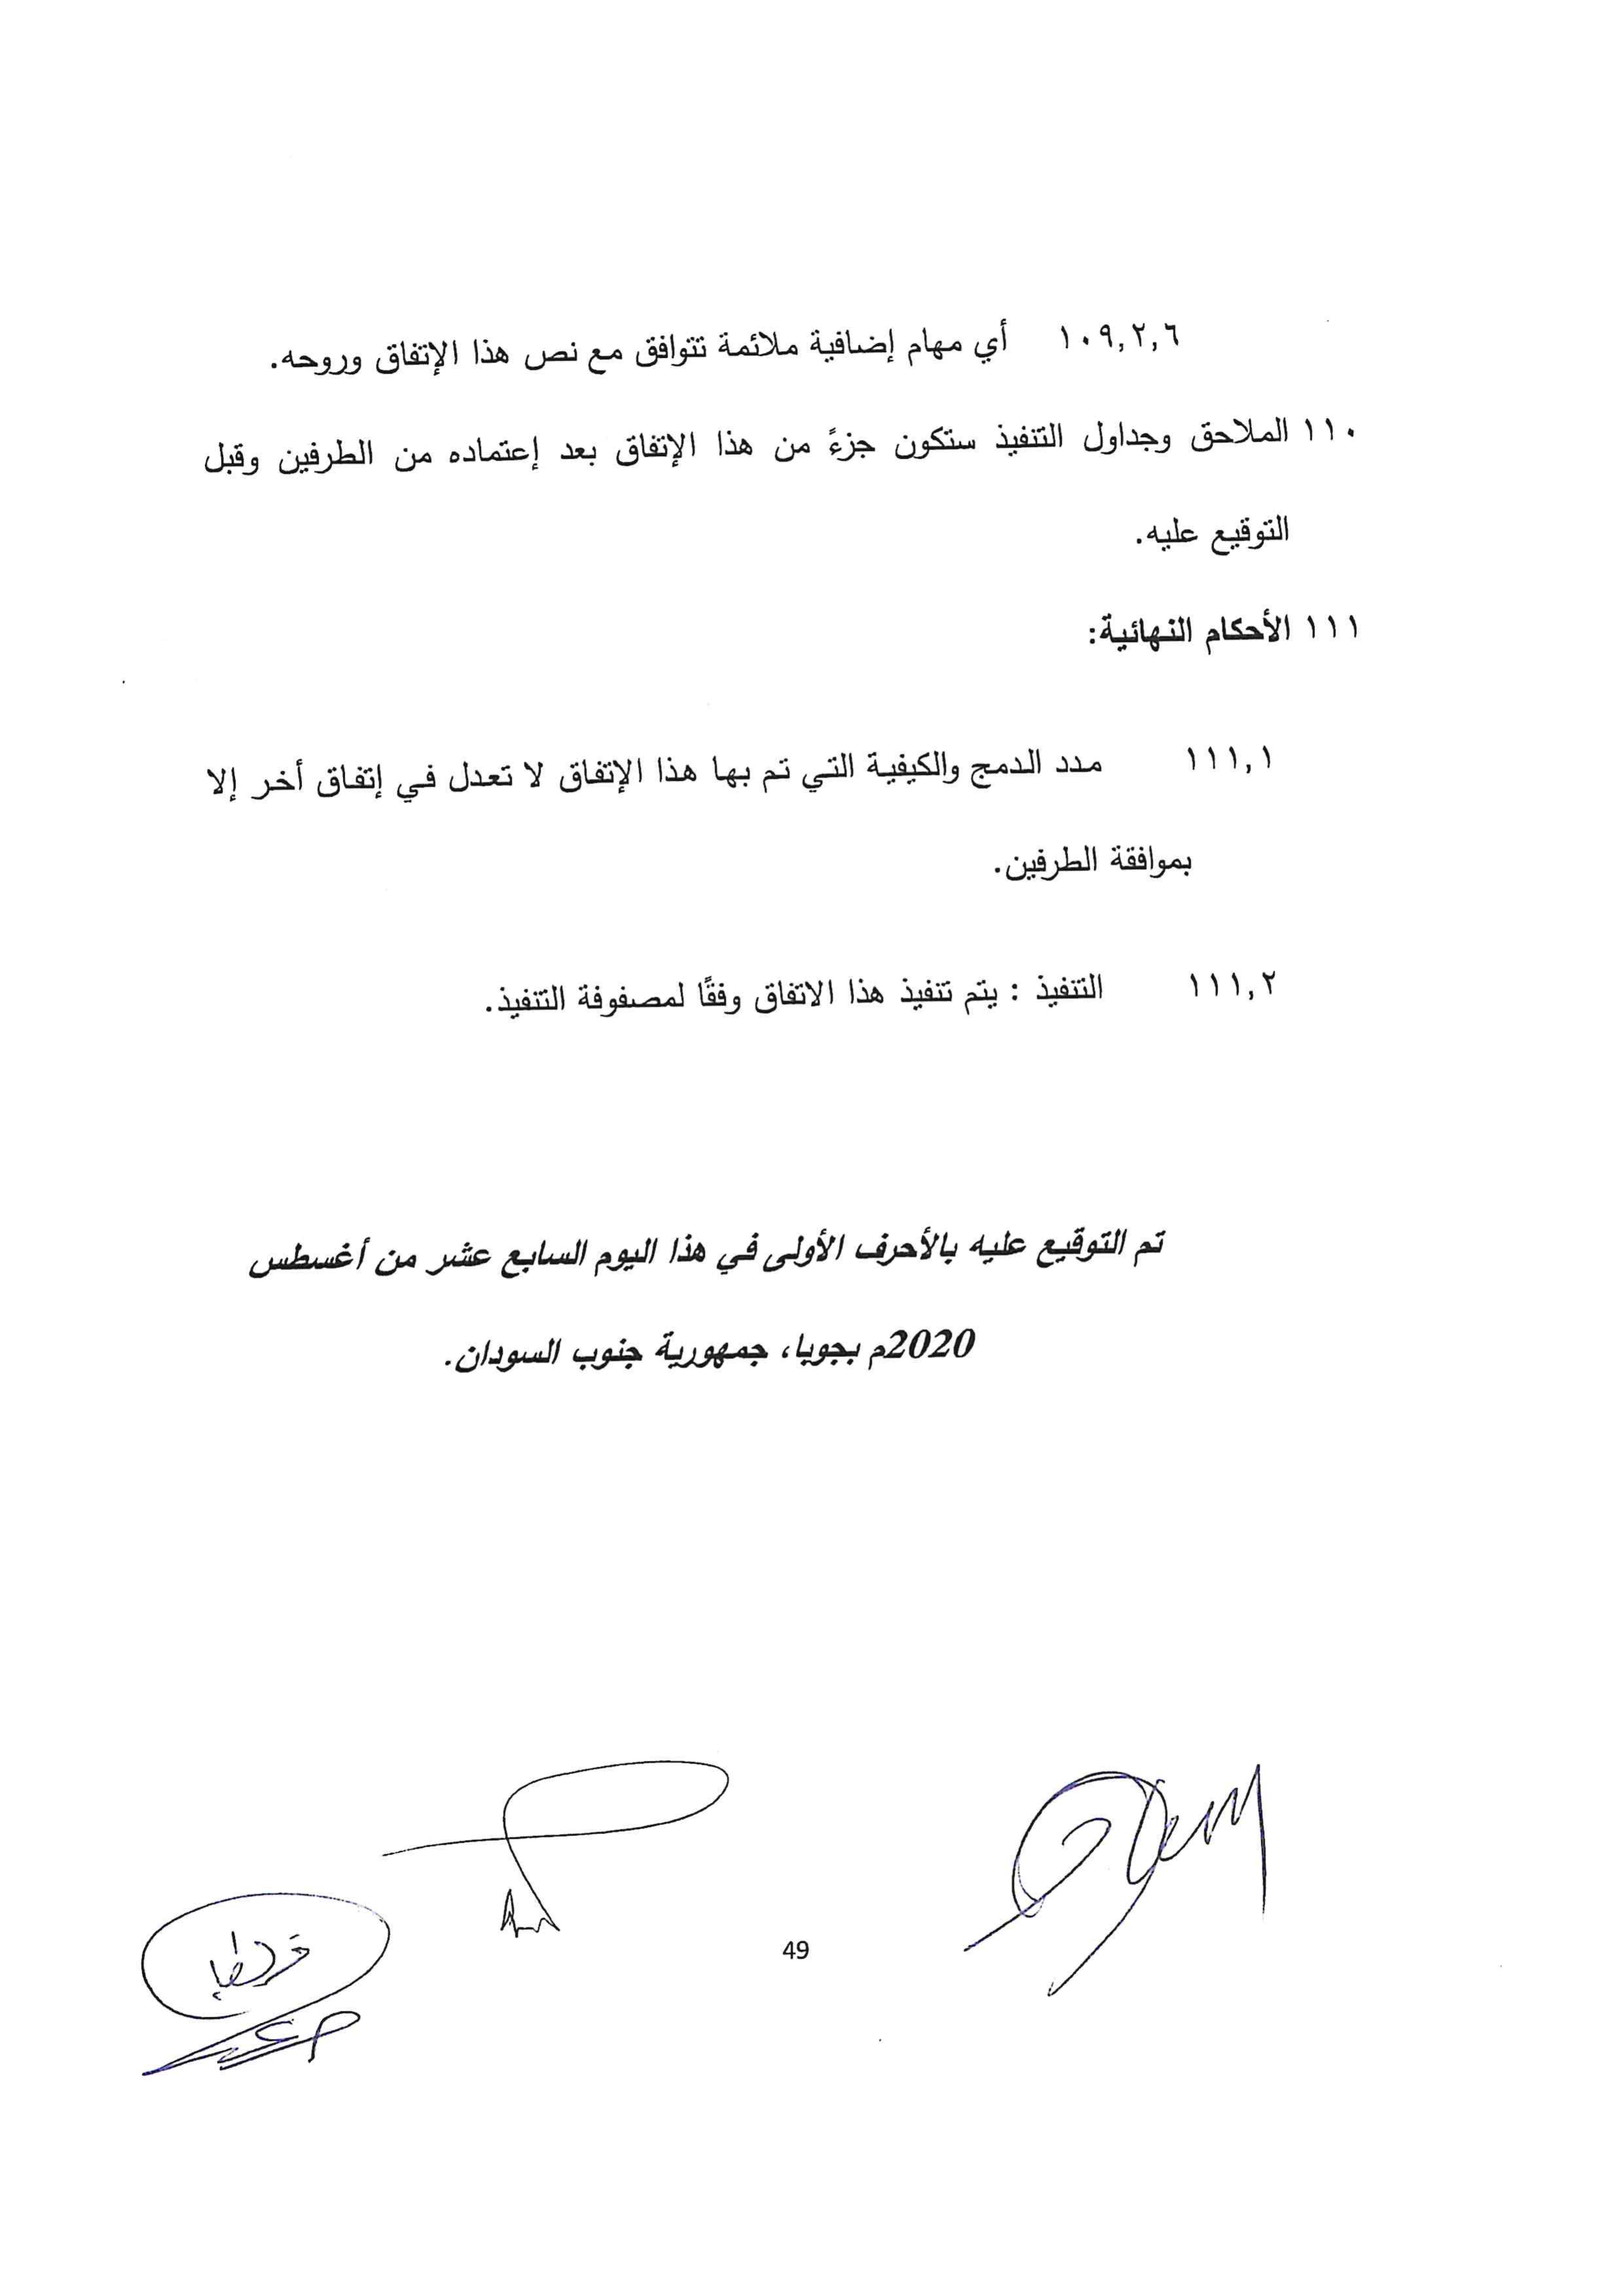 ١٠٩,٢,٦ أي مهام إضافية ملائمة تتوافق مع نص هذا الإتفاق وروحه.
١١٠ الملاحق وجداول التنفيذ ستكون جزءً من هذا الإتفاق بعد إعتماده من الطرفين وقبل
التوقيع عليه.
١١١ الأحكام النهائية:
١١١,١ مدد الدمج والكيفية التي تم بها هذا الإتفاق لا تعدل في إتفاق أخر إلا
بموافقة الطرفين.
١١١,٢ التنفيذ : يتم تنفيذ هذا الاتفاق وفقًا لمصفوفة التنفيذ.
تم التوقيع عليه بالأحرف الأولى في هذا اليوم السابع عشر من أغسطس
2020م بجوبا، جمهورية جنوب السودان.
49